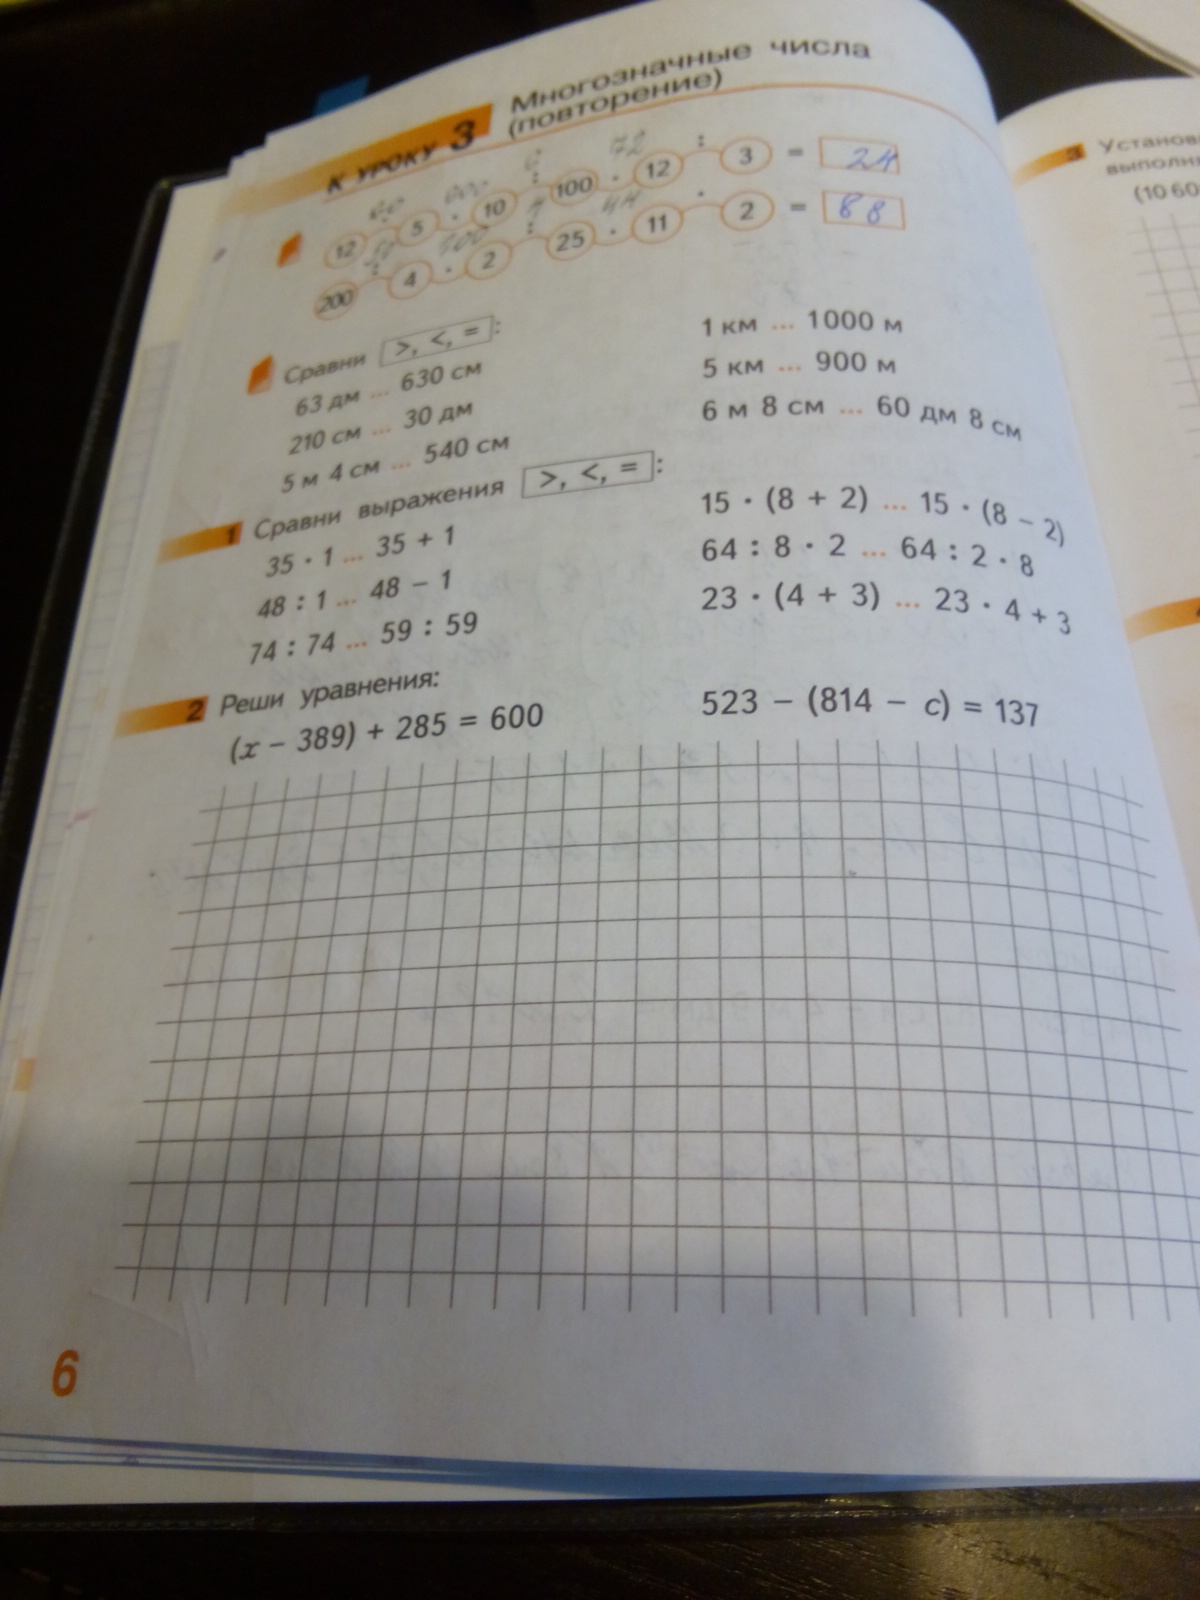 К УРОКУ 3 Многозначные числа
(повторение)
60 600 6 72
12 · 5 · 10 : 100 · 12 : 3 = 24
50 100 4 44
200 : 4 · 2 : 25 · 11 · 2 = 88
Сравни >, <, = :
63 дм ... 630 см 1 км ... 1000 м
210 см ... 30 дм 5 км ... 900 м
5 м 4 см ... 540 см 6 м 8 см ... 60 дм 8 см
1 Сравни выражения >, <, = :
35 · 1 ... 35 + 1 15 · (8 + 2) ... 15 · (8 – 2)
48 : 1 ... 48 – 1 64 : 8 · 2 ... 64 : 2 · 8
74 : 74 ... 59 : 59 23 · (4 + 3) ... 23 · 4 + 3
2 Реши уравнения:
(x – 389) + 285 = 600 523 – (814 – c) = 137
6
3 Установ
выполня
(10 60